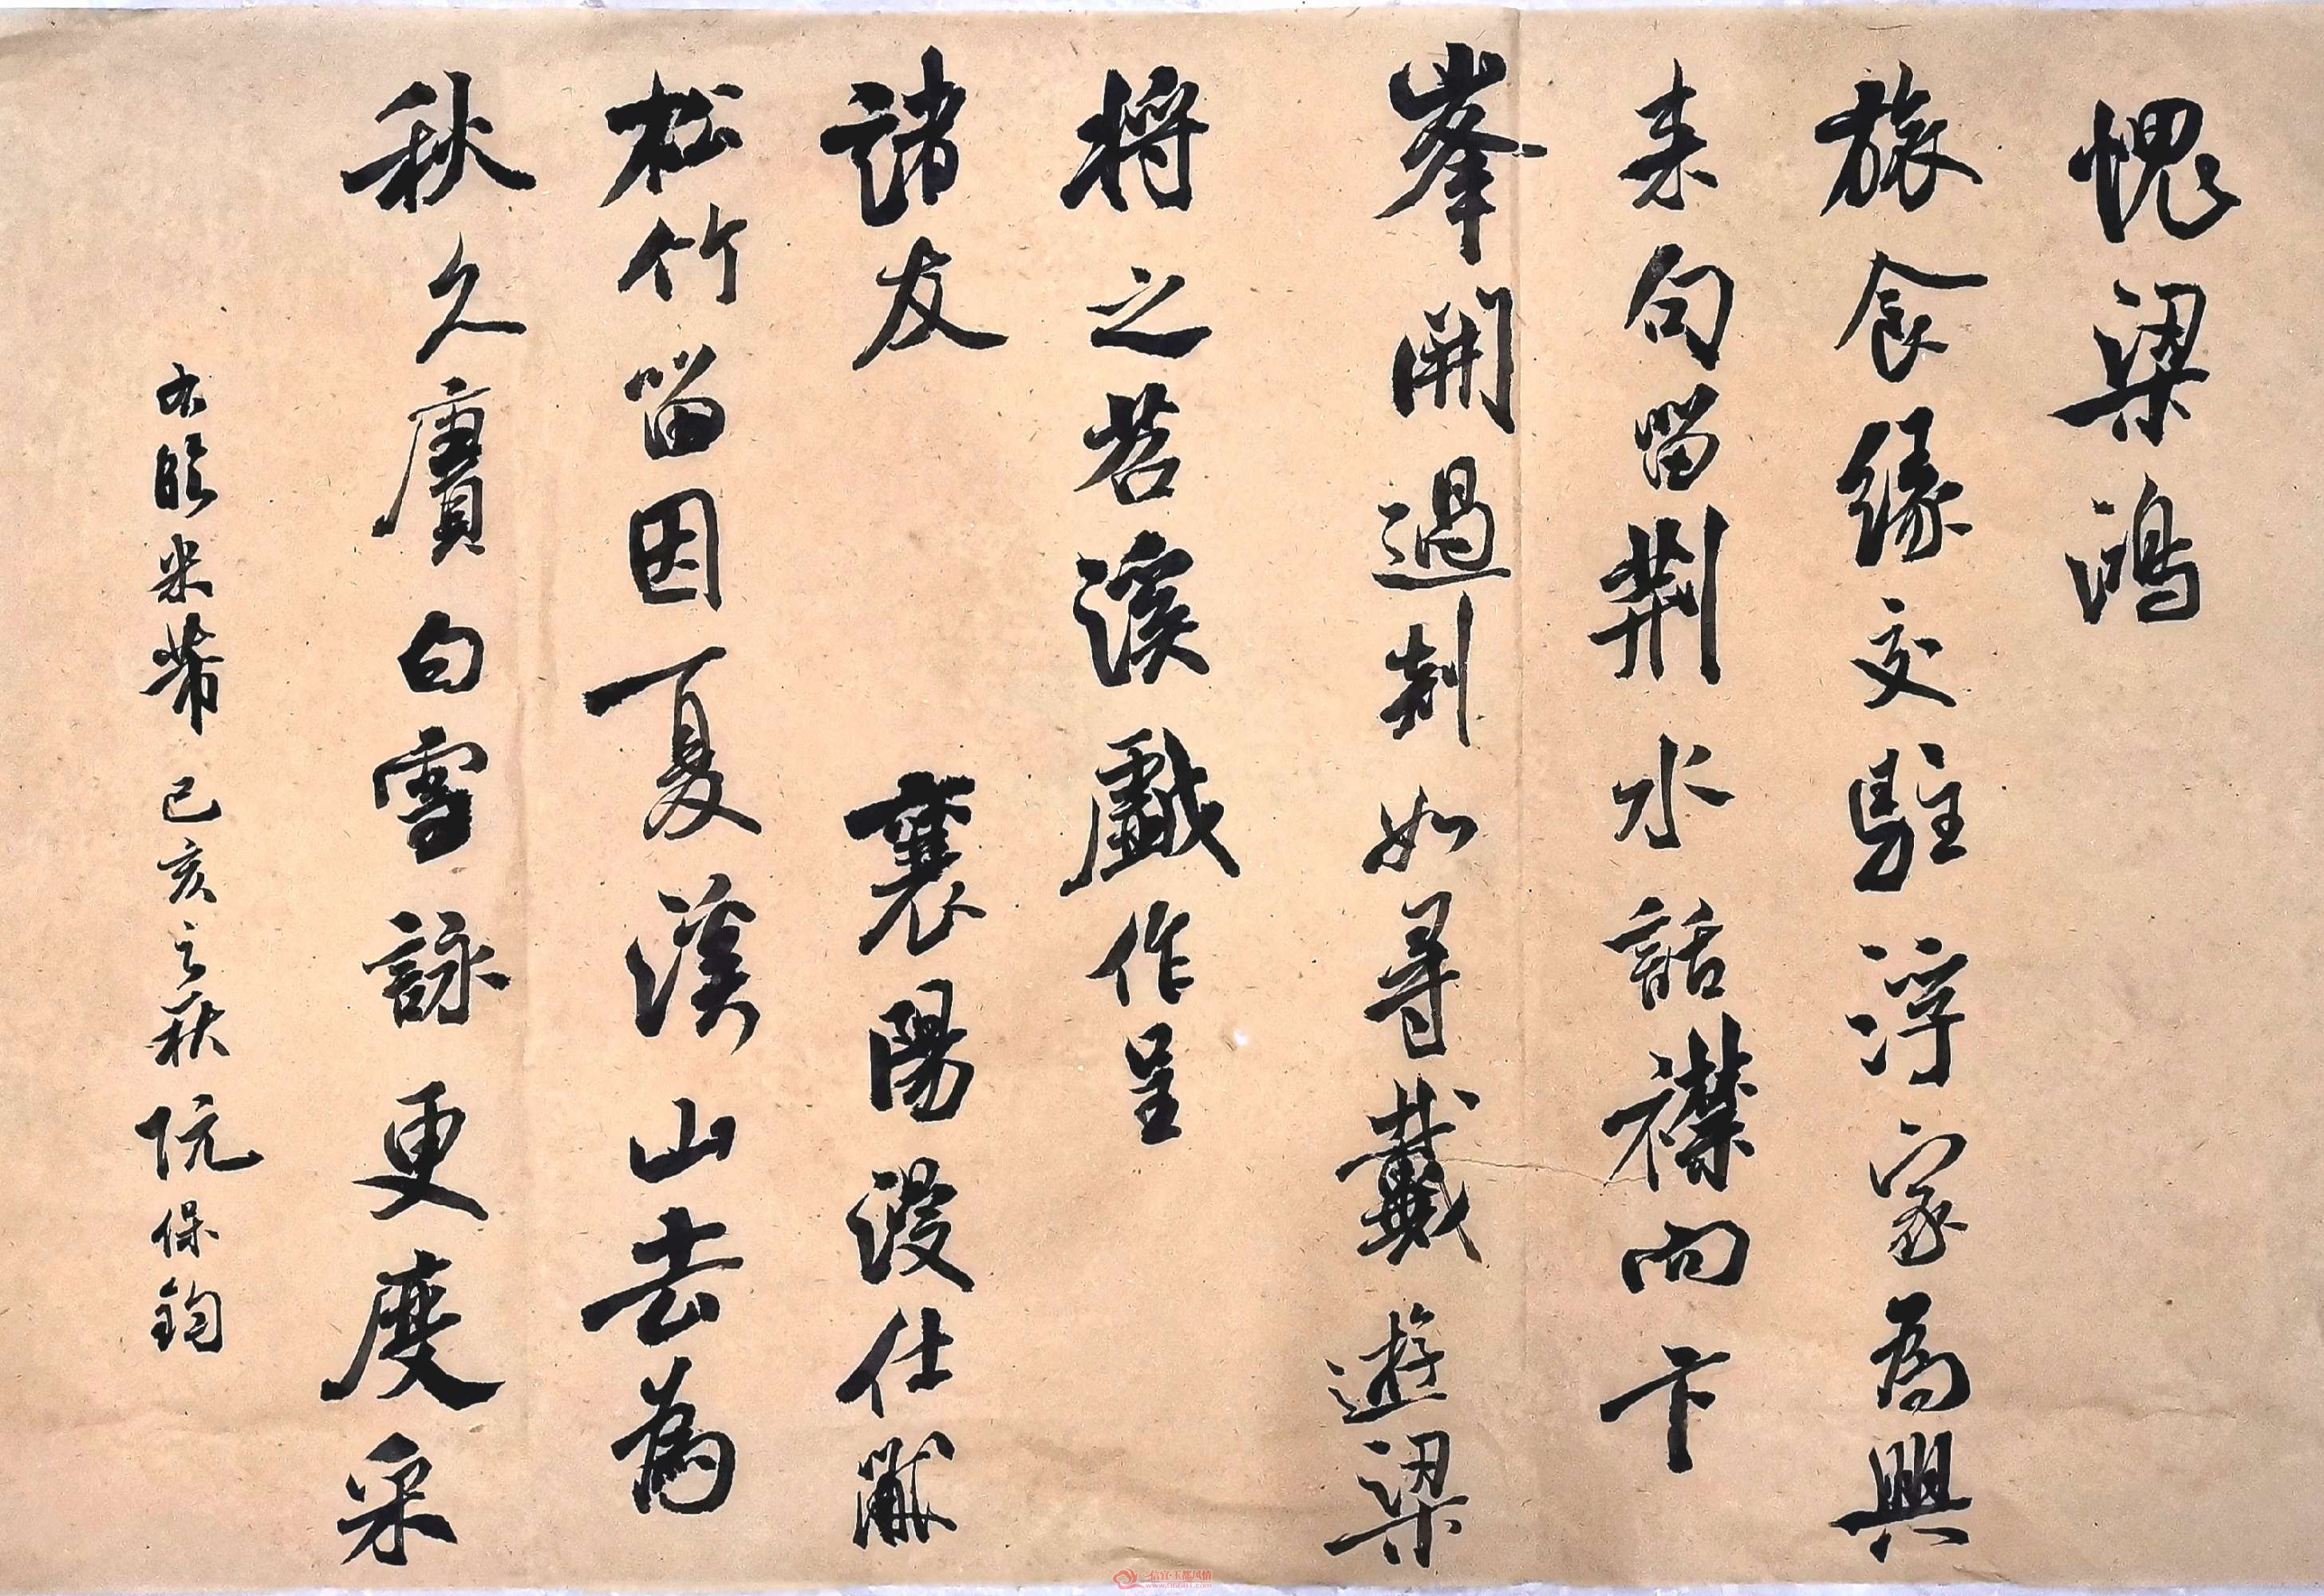 愧梁鴻
旅食緣交駐浮家為興
来句留荆水話襟向卞
峯開過剡如尋戴遊梁
将之苕溪戲作呈
諸友 襄陽漫仕黻
松竹留因夏溪山去為
秋久賡白雪詠更度采
右臨米芾 己亥之秋 阮保鈞
信宜·玉都风情